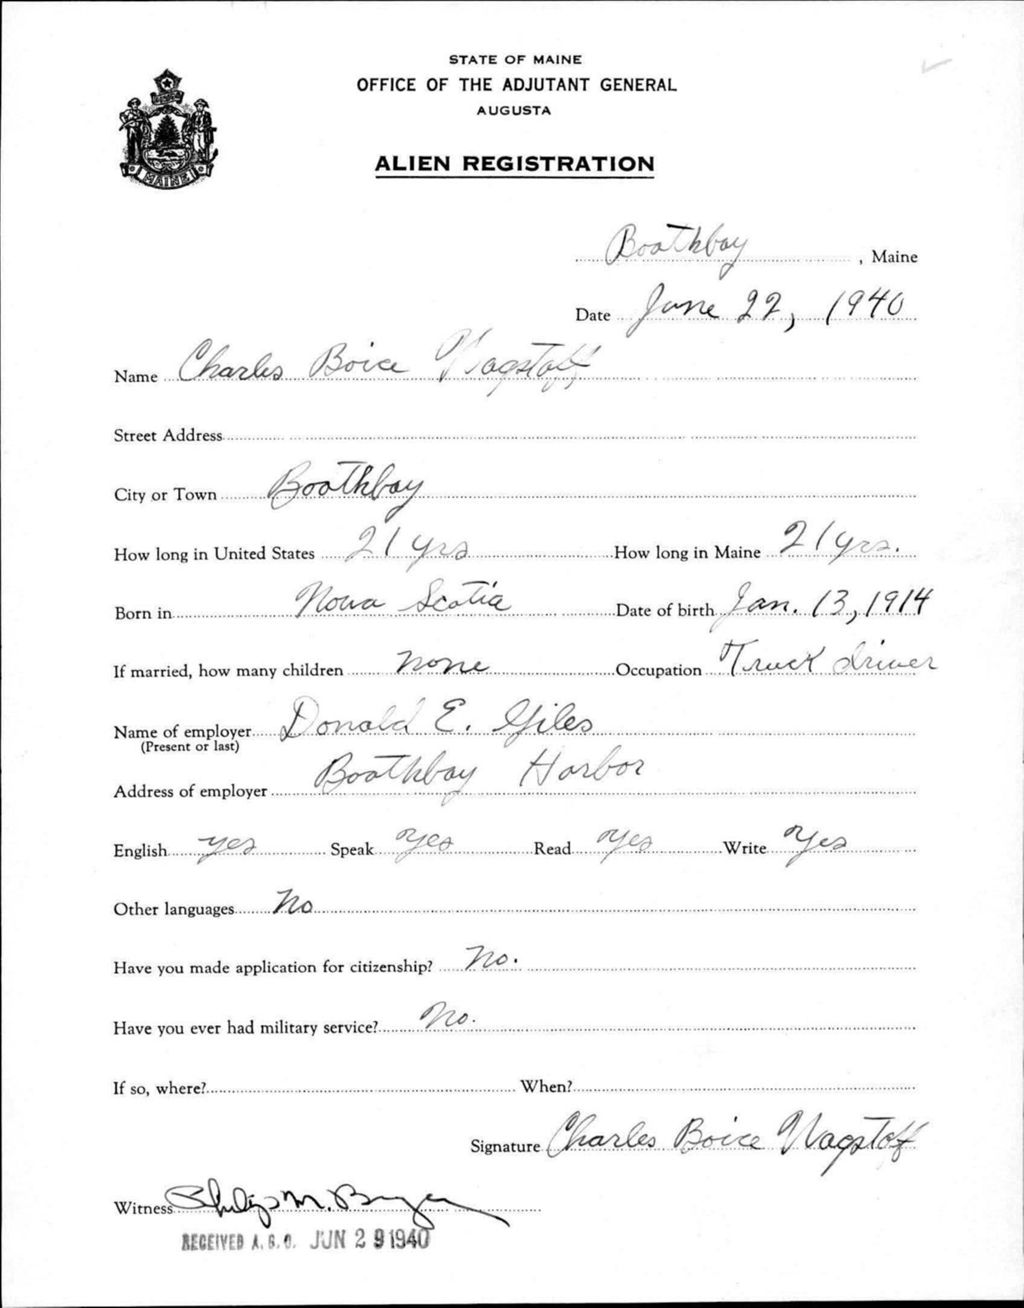 STATE OF MAINE
OFFICE OF THE ADJUTANT GENERAL
AUGUSTA
ALIEN REGISTRATION
MAINE
Boothbay, Maine
Date June 22, 1940
Name Charles Boice Wagstaff
Street Address
City or Town Boothbay
How long in United States 21 yrs How long in Maine 21 yrs.
Born in Nova Scotia Date of birth Jan. 13, 1914
If married, how many children none Occupation Truck driver
Name of employer Donald E. Giles
(Present or last)
Address of employer Boothbay Harbor
English yes Speak yes Read yes Write yes
Other languages No
Have you made application for citizenship? No.
Have you ever had military service? No.
If so, where? When?
Signature Charles Boice Wagstaff
Witness M.
RECEIVED A. G. O. JUN 29 1940